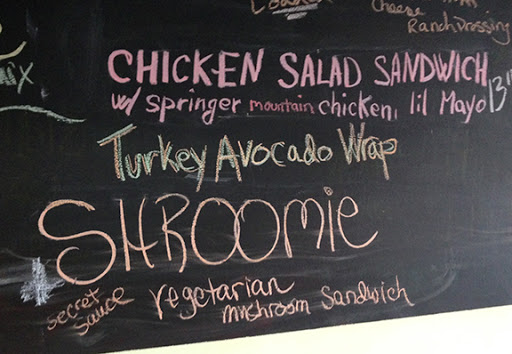 Cheese
Ranch Dressing
ix
CHICKEN SALAD SANDWICH
w/ springer mountain chicken, lil Mayo
13"
Turkey Avocado Wrap
SHROOMIE
secret sauce
vegetarian
mushroom sandwich